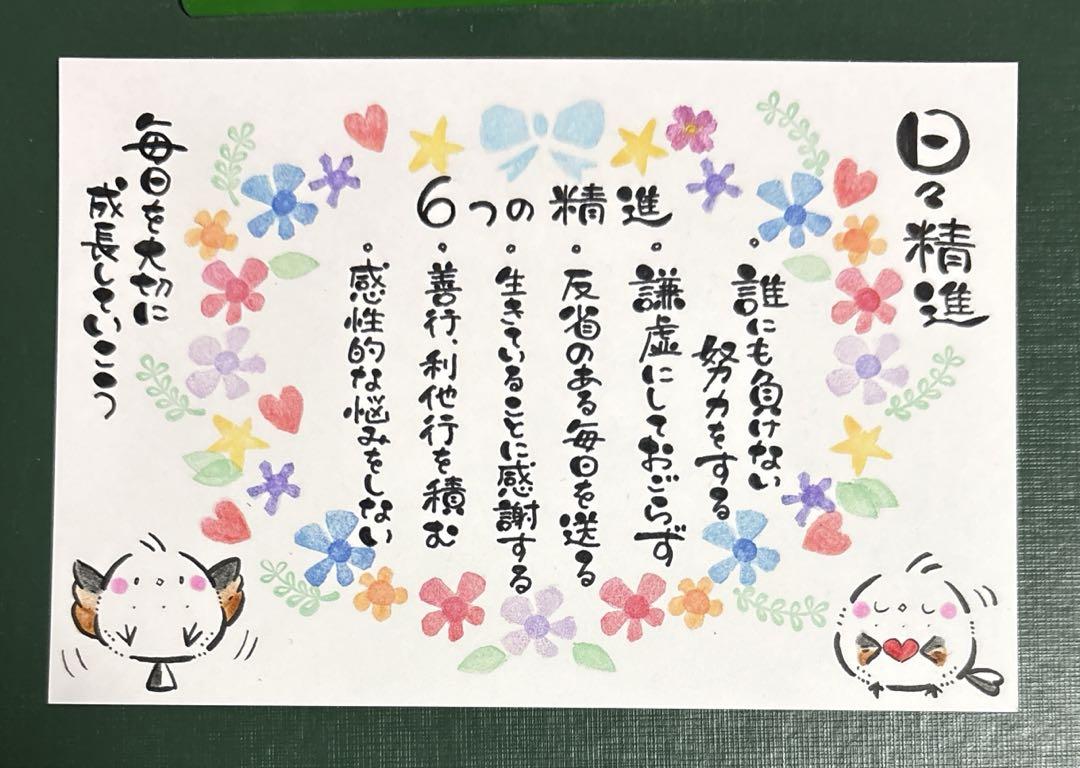 日々精進
6つの精進
・誰にも負けない
努力をする
・謙虚にしておごらず
・反省のある毎日を送る
・生きていることに感謝する
・善行、利他行を積む
・感性的な悩みをしない
毎日を大切に
成長していこう